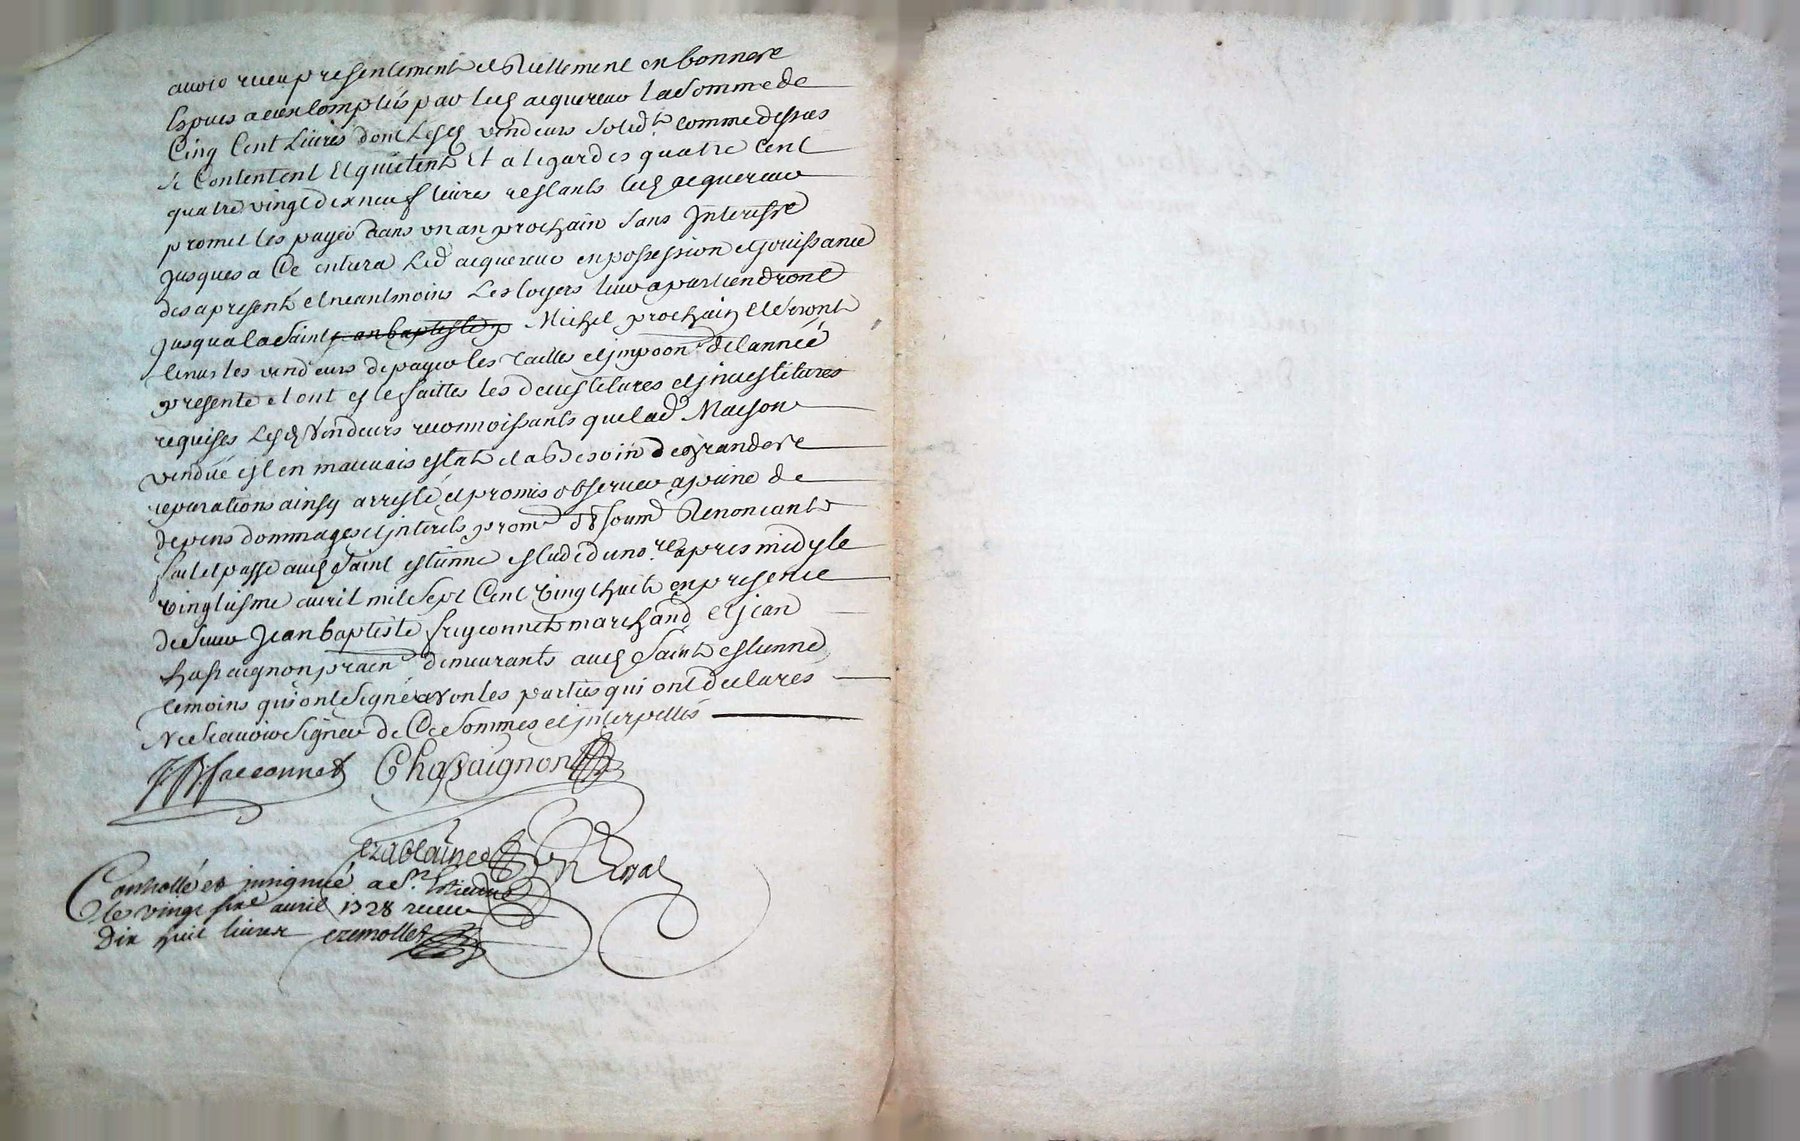 avoir receu presentement et Reellement en bonnes
Espèces a eux Comptéés par led acquereur La Somme de
Cinq Cent Livres dont Lesd vendeurs solidt comme dessus
se Contentent Et quittent Et a legard des quatre Cent
quatre vingt dix neuf livres restants led acquereur
promet les payer dans un an prochain sans Interests
Jusques a Ce entrera Led acquereur en possession et jouissance
des apresent et neantmoins Les loyers leur apartiendront
Jusqua la Saint jean baptiste p Michel prochain Et seront
tenus les vendeurs de payer les Tailles et jmpoon de l'année
presente et ont este faittes les devestitures et jnvestitures
requises Lesd Vendeurs reconnoissants que lad Maison
vendüe est en mauvais estat et a Besoin de grandes
reparations ainsy arresté et promis observer a peine de
depens dommages et jnterets prom oblig soumd Renoncants
fait et passé aud Saint estienne estude dud no.re apres midy le
vingtiesme avril mil sept Cent Vingt huit en presence
de sieur Jean baptiste freyconnet marchand et jean
chasaignon praen demeurants aud Saint estienne
temoins qui ont signé avon les parties qui ont declarés
Ne scavoir Signer de Ce Sommes et jnterpellés
Chasaignon
Controllé et jnsignué a St. Estienne
le vingt six avril 1728 receu
Dix huit livres